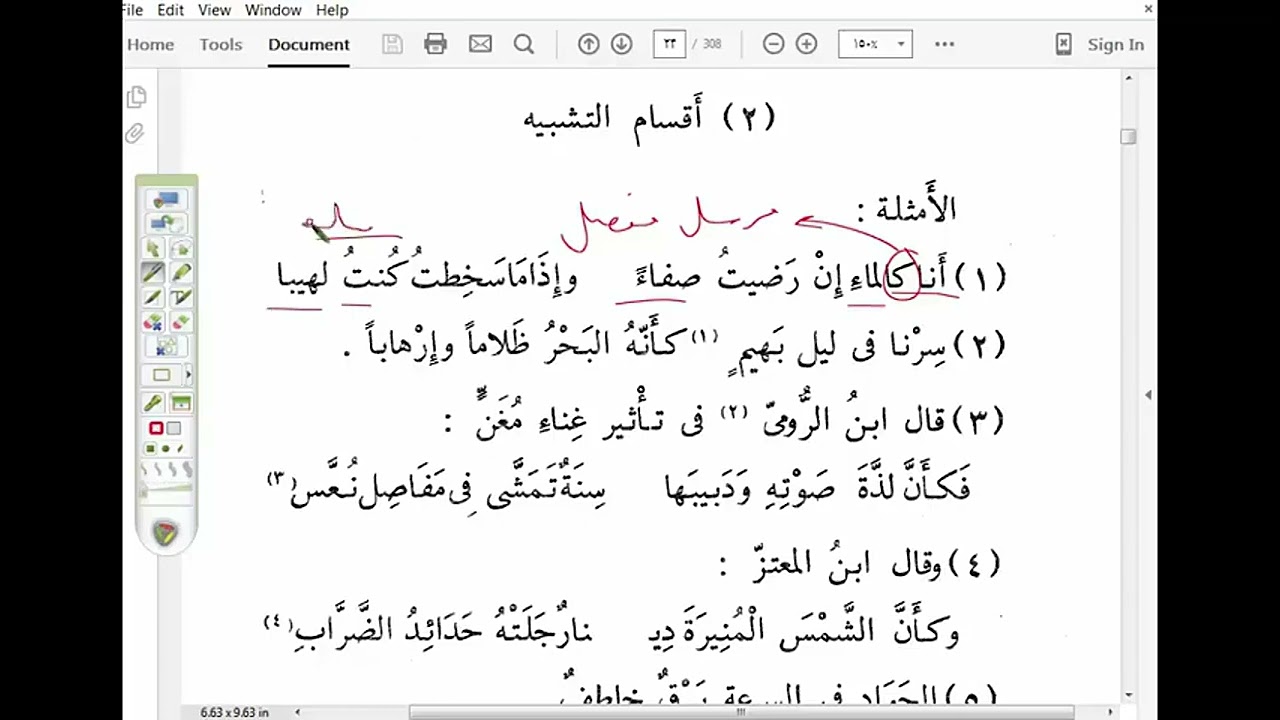 File Edit View Window Help
Home Tools Document ٢٣ / 308 ١٥٠٪ Sign In
(٢) أَقسام التشبيه
الأَمثلة :
مرسل مفصل
(١) أَنا كالماءِ إِنْ رَضيتُ صفاءً وإِذَا مَا سَخِطتُ كُنتُ لهيبا
(٢) سِرْنا فى ليل بَهيمٍ (١) كأَنّهُ البَحْرُ ظَلاماً وإِرْهاباً .
(٣) قال ابنُ الرُّومىّ (٢) فى تأْثير غِناءِ مُغَنٍّ :
فَكأَنَّ لذَّةَ صَوْتِهِ وَدَبيبَها سِنَةٌ تَمَشَّى فِى مَفَاصِل نُعَّس (٣)
(٤) وقال ابنُ المعتزّ :
وكأَنَّ الشَّمْسَ الْمُنِيرَةَ دِيـ نارٌ جَلَتْهُ حَدَائِدُ الضَّرَّابِ (٤)
(٥) الجَوَاد فى السرعة بَرْقٌ خاطفٌ
6.63 x 9.63 in